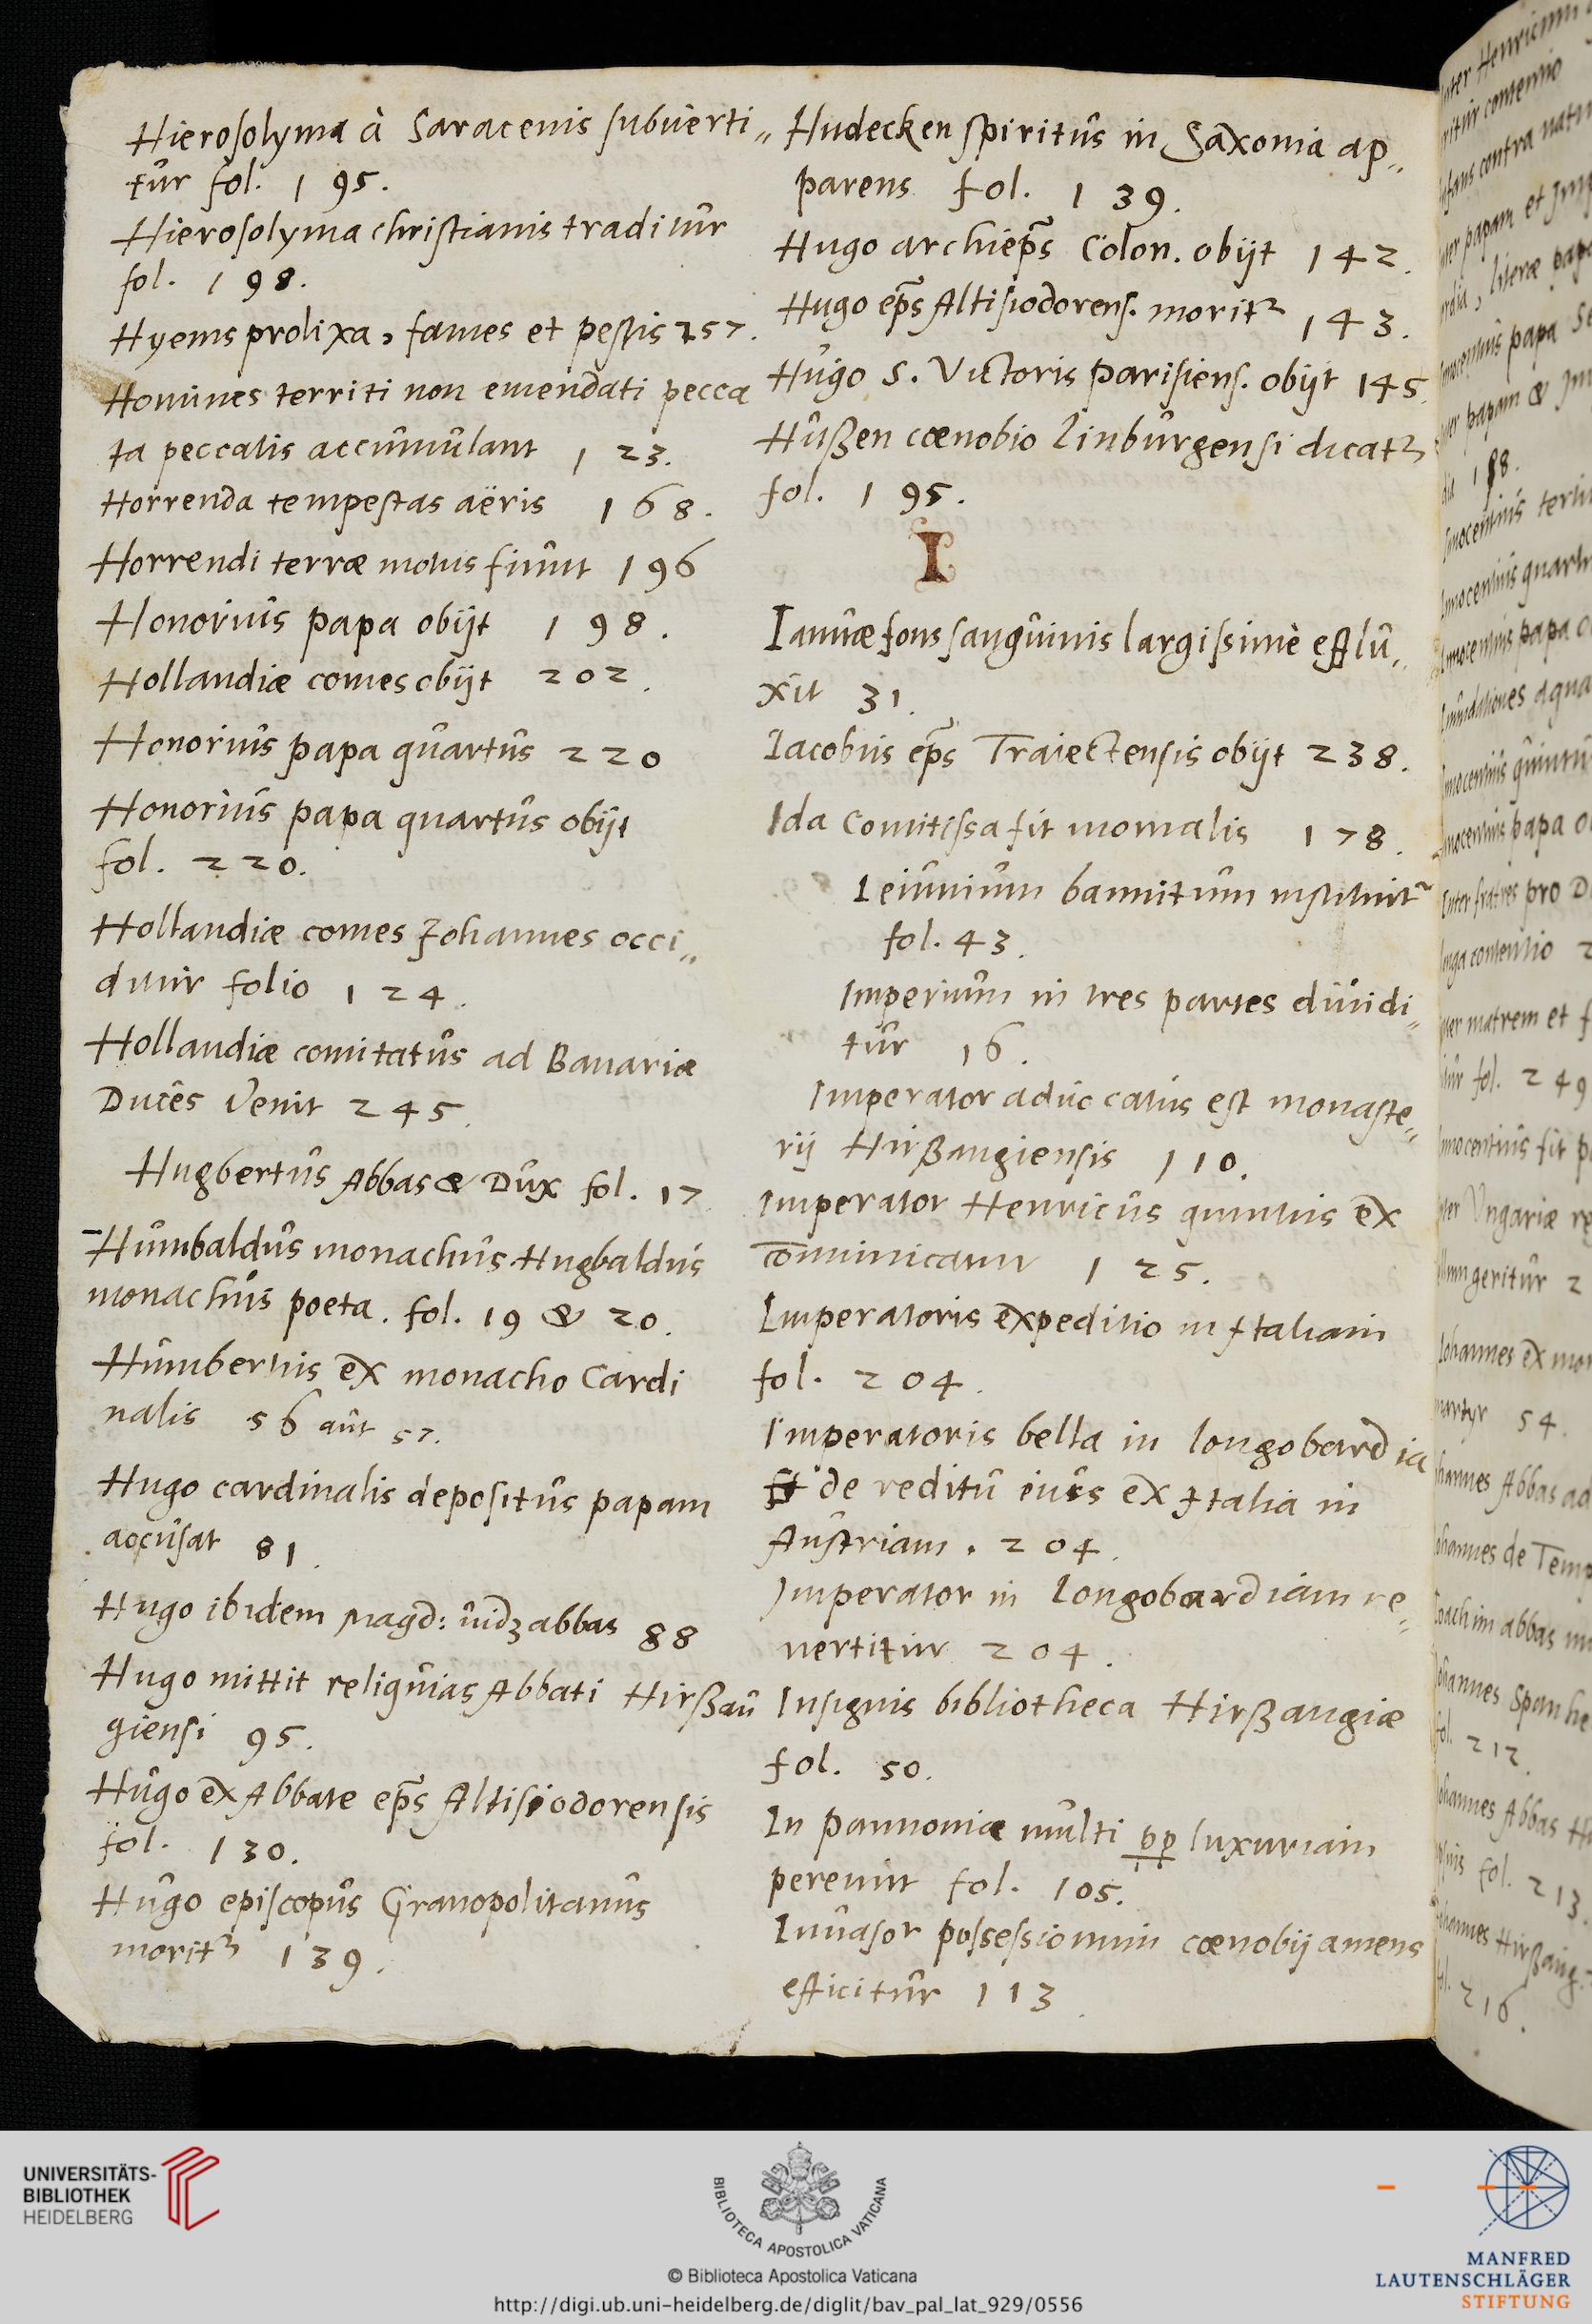 Hierosolyma à Saracenis subverti„
tur fol. 195.
Hierosolyma christianis traditur
fol. 198.
Hyems prolixa, fames et pestis 257.
Homines territi non emendati pecca
ta peccatis accumulant 123.
Horrenda tempestas aëris 168.
Horrendi terræ motus fiunt 196
Honorius papa obijt 198.
Hollandiæ comes obijt 202.
Honorius papa quartus 220
Honorius papa quartus obijt
fol. 220.
Hollandiæ comes Johannes occi„
ditur folio 124.
Hollandiæ comitatus ad Bavariæ
Duces venit 245.
Hugbertus Abbas & Dux fol. 17
Humbaldus monachus Hugbaldus
monachus poeta. fol. 19 & 20.
Humbertus ex monacho Cardi
nalis 56 aut 57.
Hugo cardinalis depositus papam
accusat 81.
Hugo ibidem Magd: abbas 88
Hugo mittit reliquias Abbati Hirßau
giensi 95.
Hugo ex Abbate ep̃s Altisiodorensis
fol. 130.
Hugo episcopus Granopolitanus
moritꝛ 139.
Hudecken spiritus in Saxonia ap„
parens fol. 139.
Hugo archiep̃s Colon. obijt 142.
Hugo ep̃s Altisiodorens. moritꝛ 143.
Hugo S. Victoris parisiens. obijt 145.
Hußen cœnobio Linburgensi dicatꝛ
fol. 195.
I
Ianuæ fons sanguinis largissimè efflu„
xit 31.
Iacobus ep̃s Traiectensis obijt 238.
Ida Comitissa fit monialis 178.
Ieiunium bannitum instituitꝛ
fol. 43.
Imperium in tres partes dividi„
tur 16.
Imperator advocatus est monaste„
rij Hirßaugiensis 110.
Imperator Henricus quintus ex
com̄unicatur 125.
Imperatoris expeditio in Italiam
fol. 204.
Imperatoris bella in Longobardia
Et de reditu eius ex Italia in
Austriam. 204.
Imperator in Longobardiam re„
vertitur 204.
Insignis bibliotheca Hirßaugiæ
fol. 50.
In pannonia multi pp luxuriam
pereunt fol. 105.
Invasor possessionum cœnobij amens
efficitur 113
UNIVERSITÄTS-
BIBLIOTHEK
HEIDELBERG
BIBLIOTECA APOSTOLICA VATICANA
© Biblioteca Apostolica Vaticana
http://digi.ub.uni-heidelberg.de/diglit/bav_pal_lat_929/0556
MANFRED
LAUTENSCHLÄGER
STIFTUNG